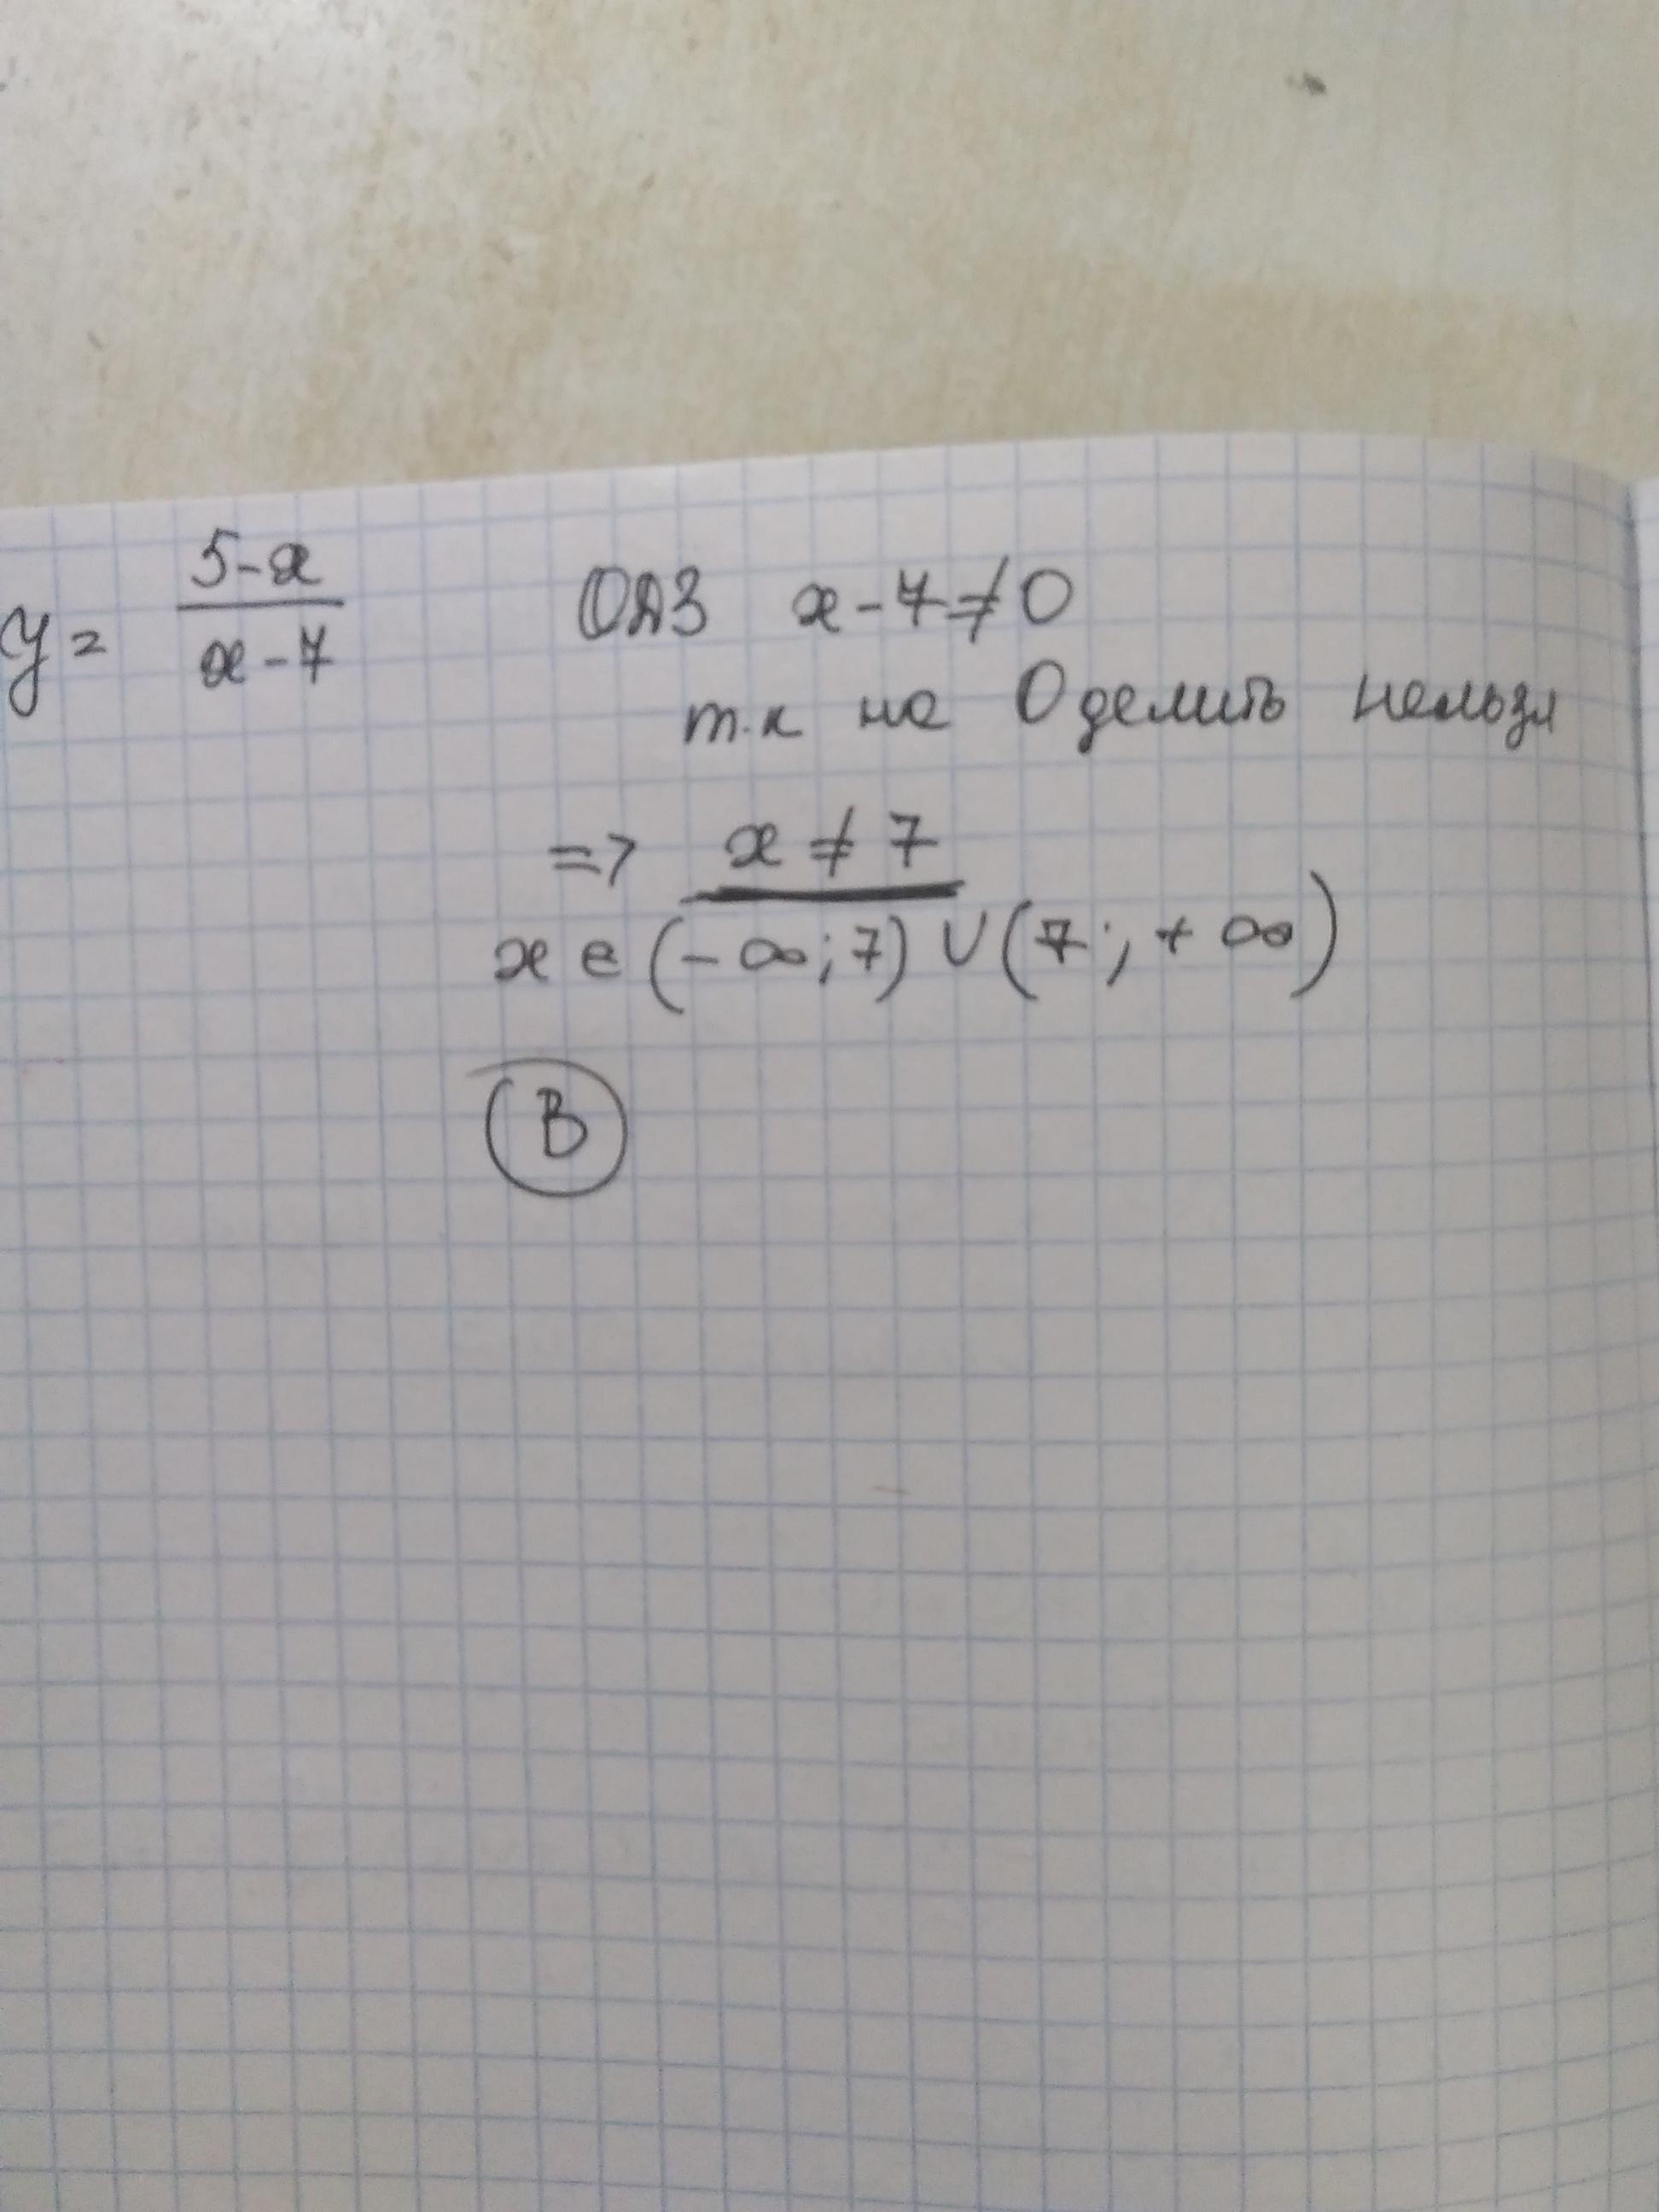 y = 5-x / x-7 ОДЗ x-7≠0
т.к на 0 делить нельзя
=> x ≠ 7
x ∈ (-∞; 7) ∪ (7; +∞)
В